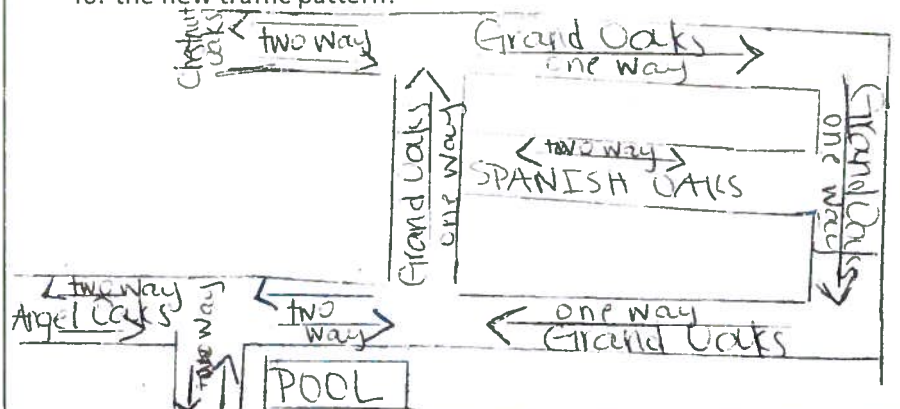 for the new traffic pattern?
Chestnut
Oaks
two way
Grand Oaks
one way
Grand Oaks
one way
two way
SPANISH OAKS
Grand Oaks
one way
two way
Angel Oaks
two way
two
way
one way
Grand Oaks
POOL